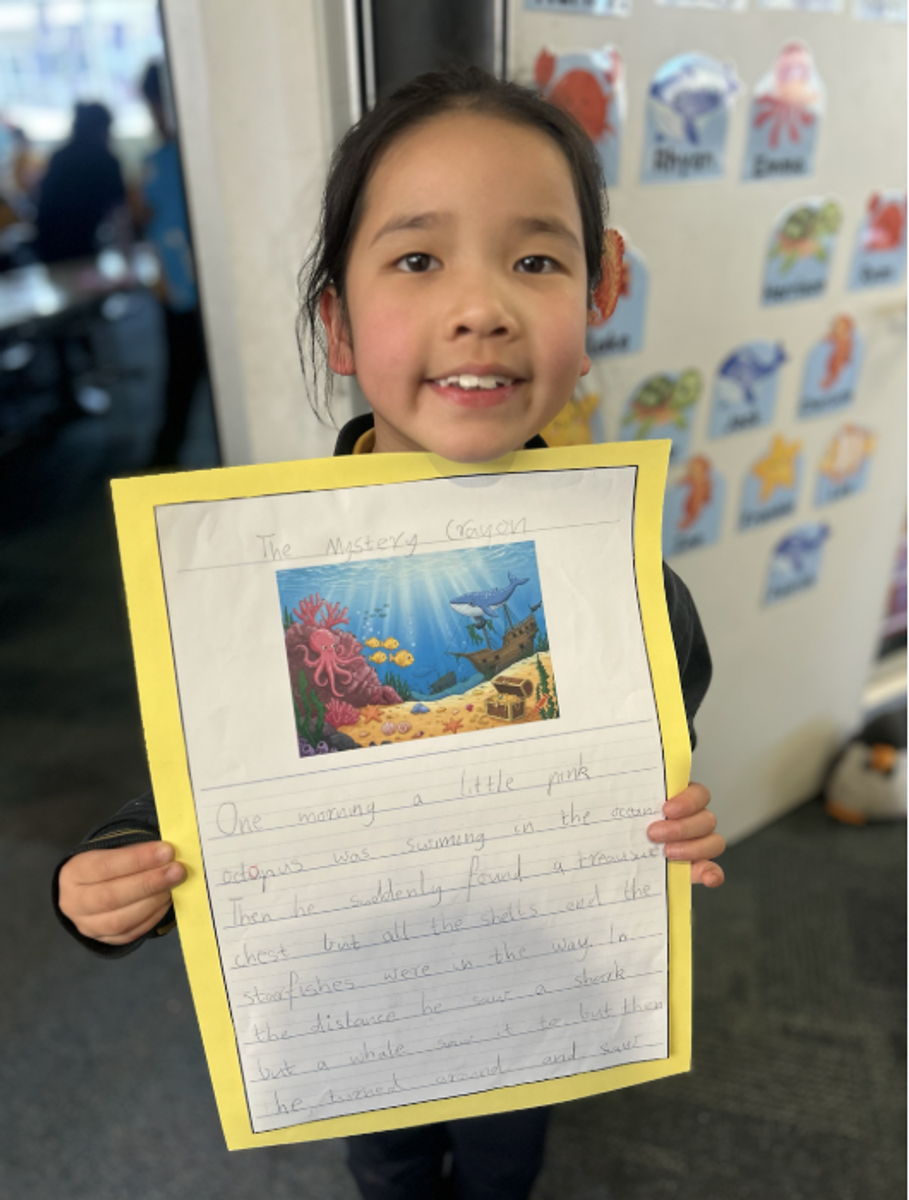 The Mystery Crayon
One morning a little pink
octopus was swiming in the ocean
Then he suddenly found a treasure
chest but all the shells and the
starfishes were in the way. In
the distance he saw a shark
but a whale saw it to but then
he turned around and saw
Rhyan
Emma